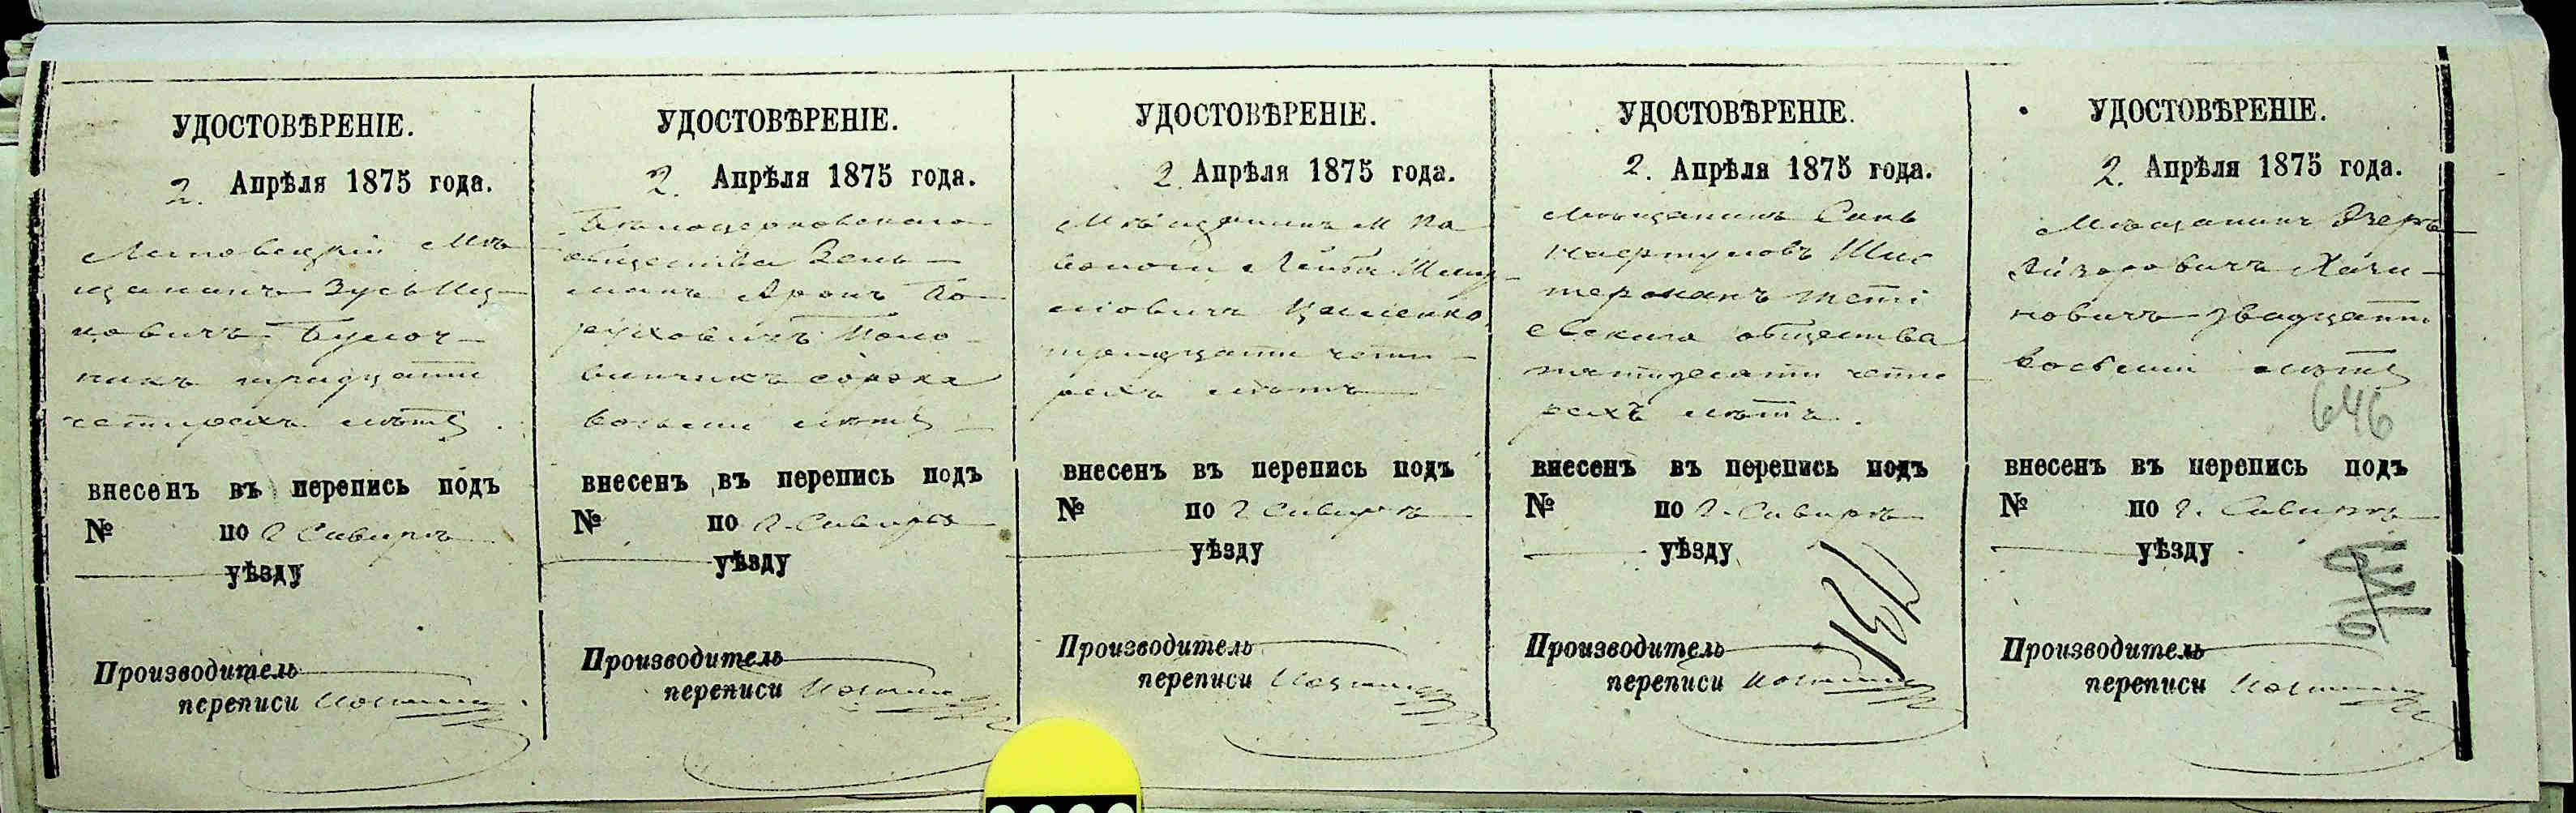 УДОСТОВѢРЕНІЕ.
2. Апрѣля 1875 года.
Липовецкій Мѣ-
щанинъ Зусь Иц-
ковичъ Булоч-
никъ тридцати
четырехъ лѣтъ.
внесенъ въ перепись подъ
№ по г Сквирѣ
уѣзду
Производитель
переписи
УДОСТОВѢРЕНІЕ.
2. Апрѣля 1875 года.
Бѣлоцерковскаго
общества Зель-
манъ Аронъ Бо-
руховичъ
сорока
восьми лѣтъ
внесенъ въ перепись подъ
№ по г. Сквирѣ
уѣзду
Производитель
переписи
УДОСТОВѢРЕНІЕ.
2. Апрѣля 1875 года.
Мѣщанинъ М Па
волочи Лейба Шму-
ловичъ
тридцати четы-
рехъ лѣтъ
внесенъ въ перепись подъ
№ по г Сквирѣ
уѣзду
Производитель
переписи
УДОСТОВѢРЕНІЕ.
2. Апрѣля 1875 года.
Мѣщанинъ
Шис
терманъ Теті
евскаго общества
пятидесяти четы
рехъ лѣтъ.
внесенъ въ перепись подъ
№ по г. Сквирѣ
уѣзду
Производитель
переписи
УДОСТОВѢРЕНІЕ.
2. Апрѣля 1875 года.
Мѣщанинъ Озеръ
Айзоровичъ Хаи-
новичъ двадцати
восьми лѣтъ
646
внесенъ въ перепись подъ
№ по г. Сквирѣ
уѣзду
Производитель
переписи